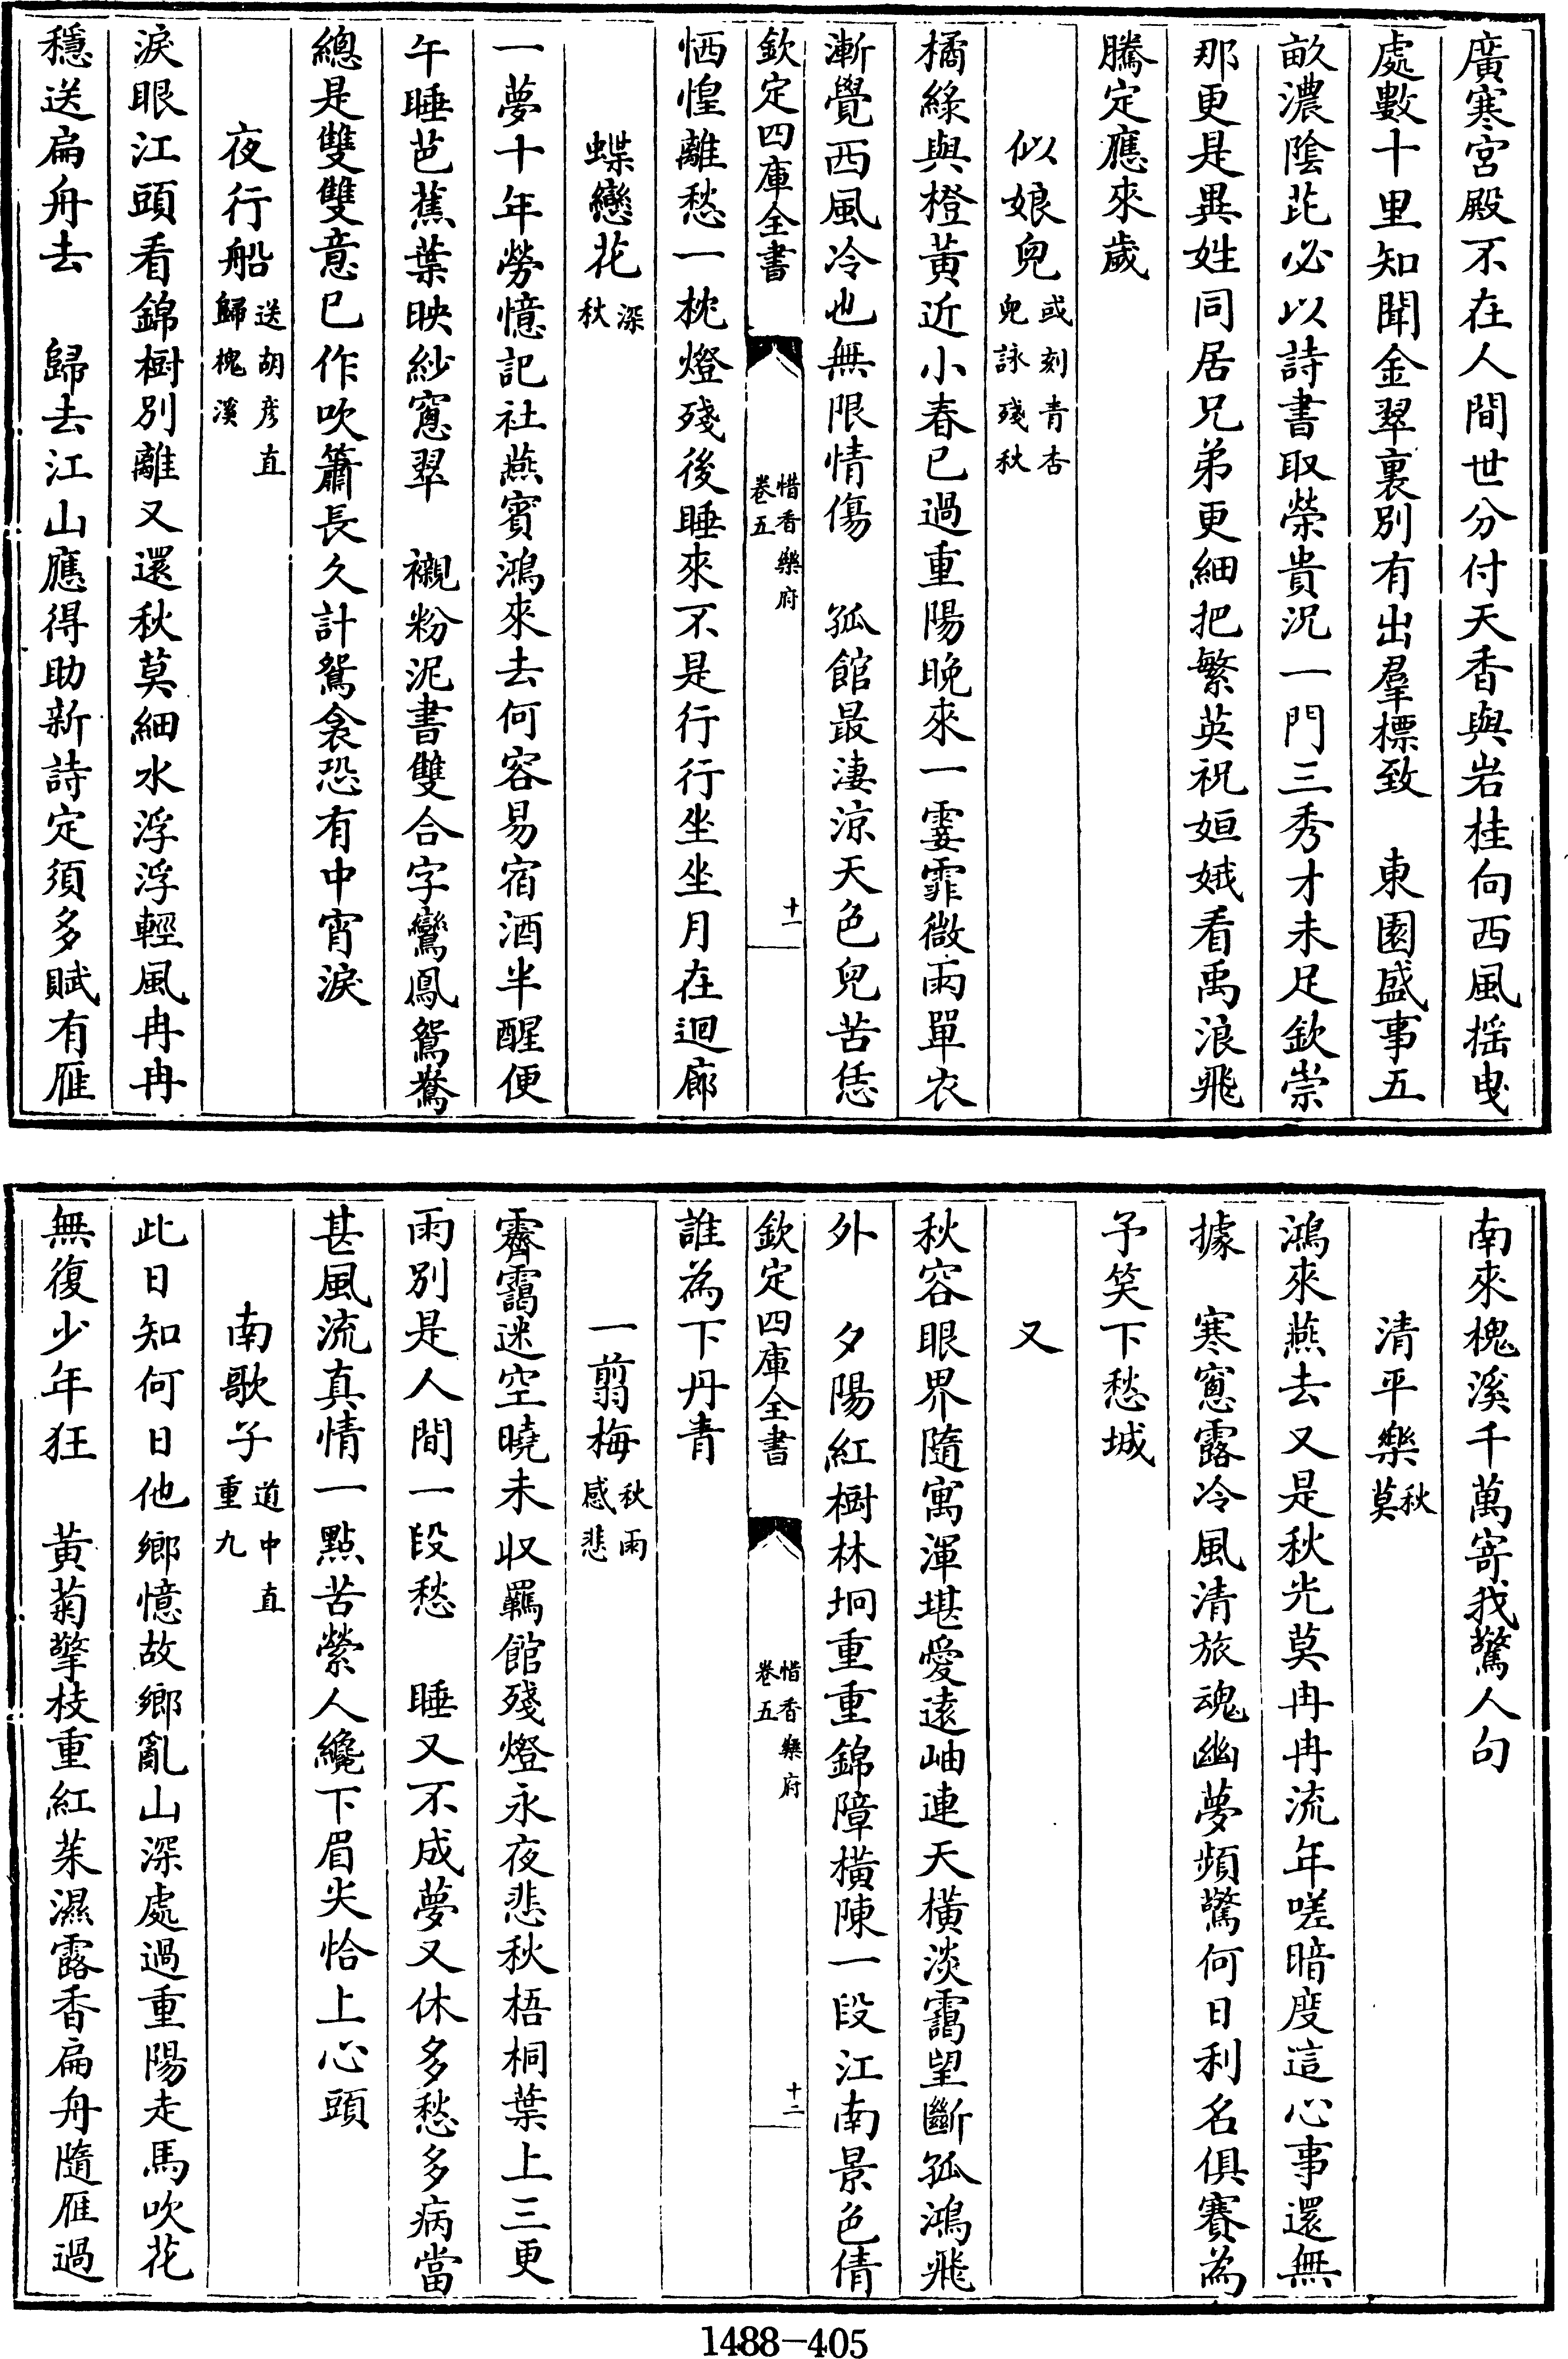 廣寒宮殿不在人間世分付天香與岩桂向西風揺曵
處數十里知聞金翠裏別有出羣標致　東園盛事五
畝濃陰芘必以詩書取榮貴況一門三秀才未足欽崇
那更是異姓同居兄弟更細把繁英祝姮娥看禹浪飛
騰定應來歲
似娘兒或刻青杏兒詠殘秋
橘綠與橙黃近小春已過重陽晚來一霎霏微雨單衣
漸覺西風冷也無限情傷　孤館最淒涼天色兒苦恁
欽定四庫全書　惜香樂府卷五　十一
恓惶離愁一枕燈殘後睡來不是行行坐坐月在迴廊
蝶戀花深秋
一夢十年勞憶記社燕賓鴻來去何容易宿酒半醒便
午睡芭蕉葉映紗窻翠　襯粉泥書雙合字鸞鳳鴛鴦
總是雙雙意已作吹簫長久計鴛衾恐有中宵淚
夜行船送胡彥直歸槐溪
淚眼江頭看錦樹別離又還秋莫細水浮浮輕風冉冉
穩送扁舟去　歸去江山應得助新詩定須多賦有雁
南來槐溪千萬寄我驚人句
清平樂秋莫
鴻來燕去又是秋光莫冉冉流年嗟暗度這心事還無
據　寒窻露冷風清旅魂幽夢頻驚何日利名俱賽為
予笑下愁城
又
秋容眼界隨寓渾堪愛遠岫連天橫淡靄望斷孤鴻飛
外　夕陽紅樹林坰重重錦障橫陳一段江南景色倩
欽定四庫全書　惜香樂府卷五　十二
誰為下丹青
一翦梅秋雨感悲
霽靄迷空曉未收羈館殘燈永夜悲秋梧桐葉上三更
雨別是人間一段愁　睡又不成夢又休多愁多病當
甚風流真情一點苦縈人纔下眉尖恰上心頭
南歌子道中直重九
此日知何日他鄉憶故鄉亂山深處過重陽走馬吹花
無復少年狂　黃菊擎枝重紅茱濕露香扁舟隨雁過
1488-405